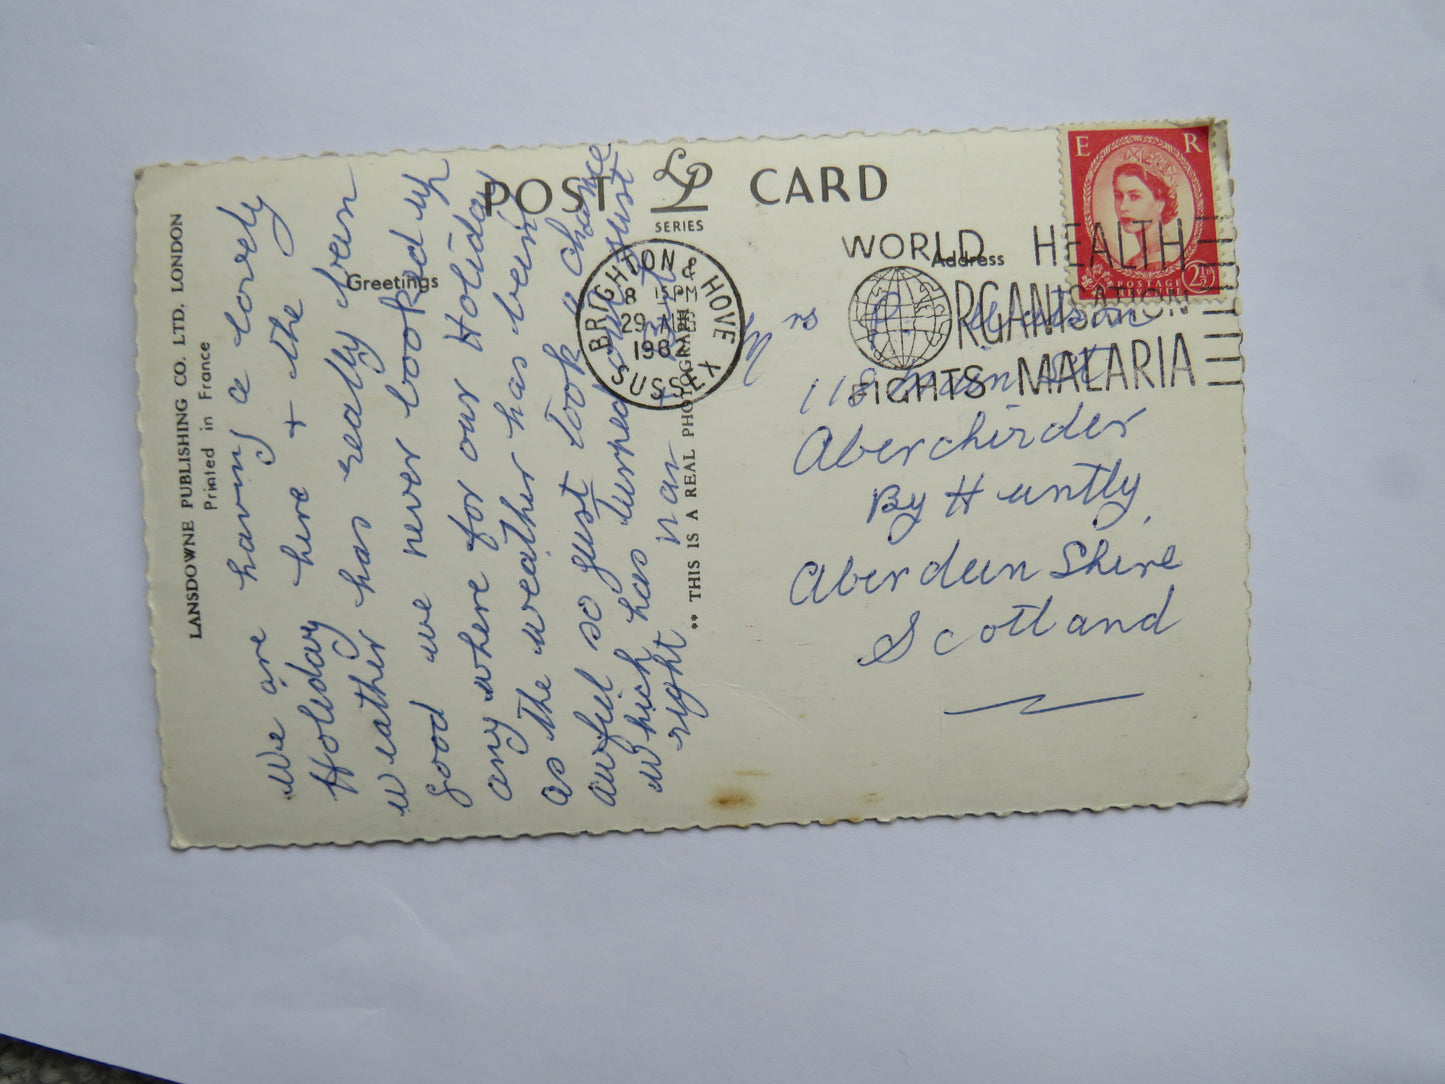 POST CARD
LP
SERIES
Greetings
Address
LANSDOWNE PUBLISHING CO. LTD. LONDON
Printed in France
** THIS IS A REAL PHOTOGRAPH
BRIGHTON & HOVE
8 15PM
29 AUG
196
SUSSEX
WORLD HEALTH
ORGANISATION
FIGHTS MALARIA
E R
POSTAGE
REVENUE
2½D
We are having a lovely
Holiday here + the
weather has really been
good we never booked up
any where for our Holiday
as the weather has been
awful so just took a chance
which has turned out just
right
Mrs
118 Main St
Aberchirder
By Huntly,
Aberdeen Shire
Scotland